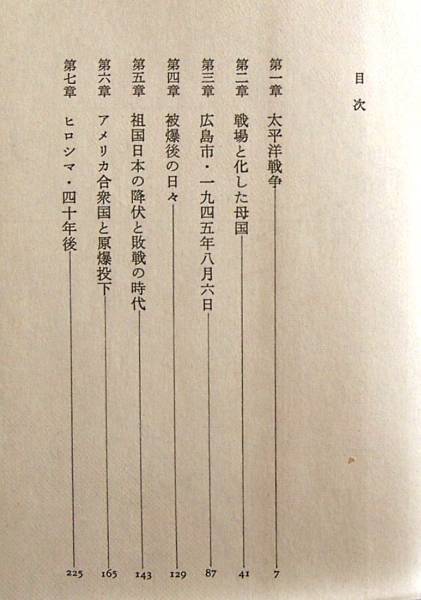 目次
第一章 太平洋戦争 7
第二章 戦場と化した母国 41
第三章 広島市・一九四五年八月六日 87
第四章 被爆後の日々 129
第五章 祖国日本の降伏と敗戦の時代 143
第六章 アメリカ合衆国と原爆投下 165
第七章 ヒロシマ・四十年後 225